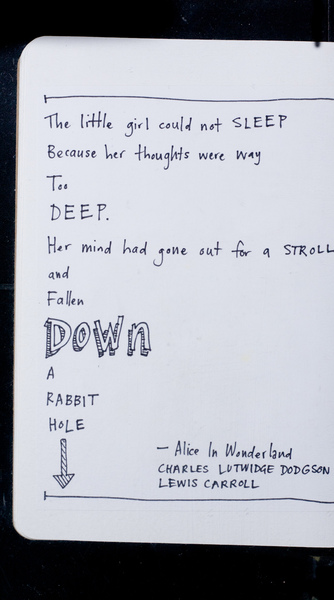 The little girl could not SLEEP
Because her thoughts were way
Too
DEEP.
Her mind had gone out for a STROLL
and
Fallen
DOWN
A
RABBIT
HOLE
— Alice In Wonderland
CHARLES LUTWIDGE DODGSON
LEWIS CARROLL